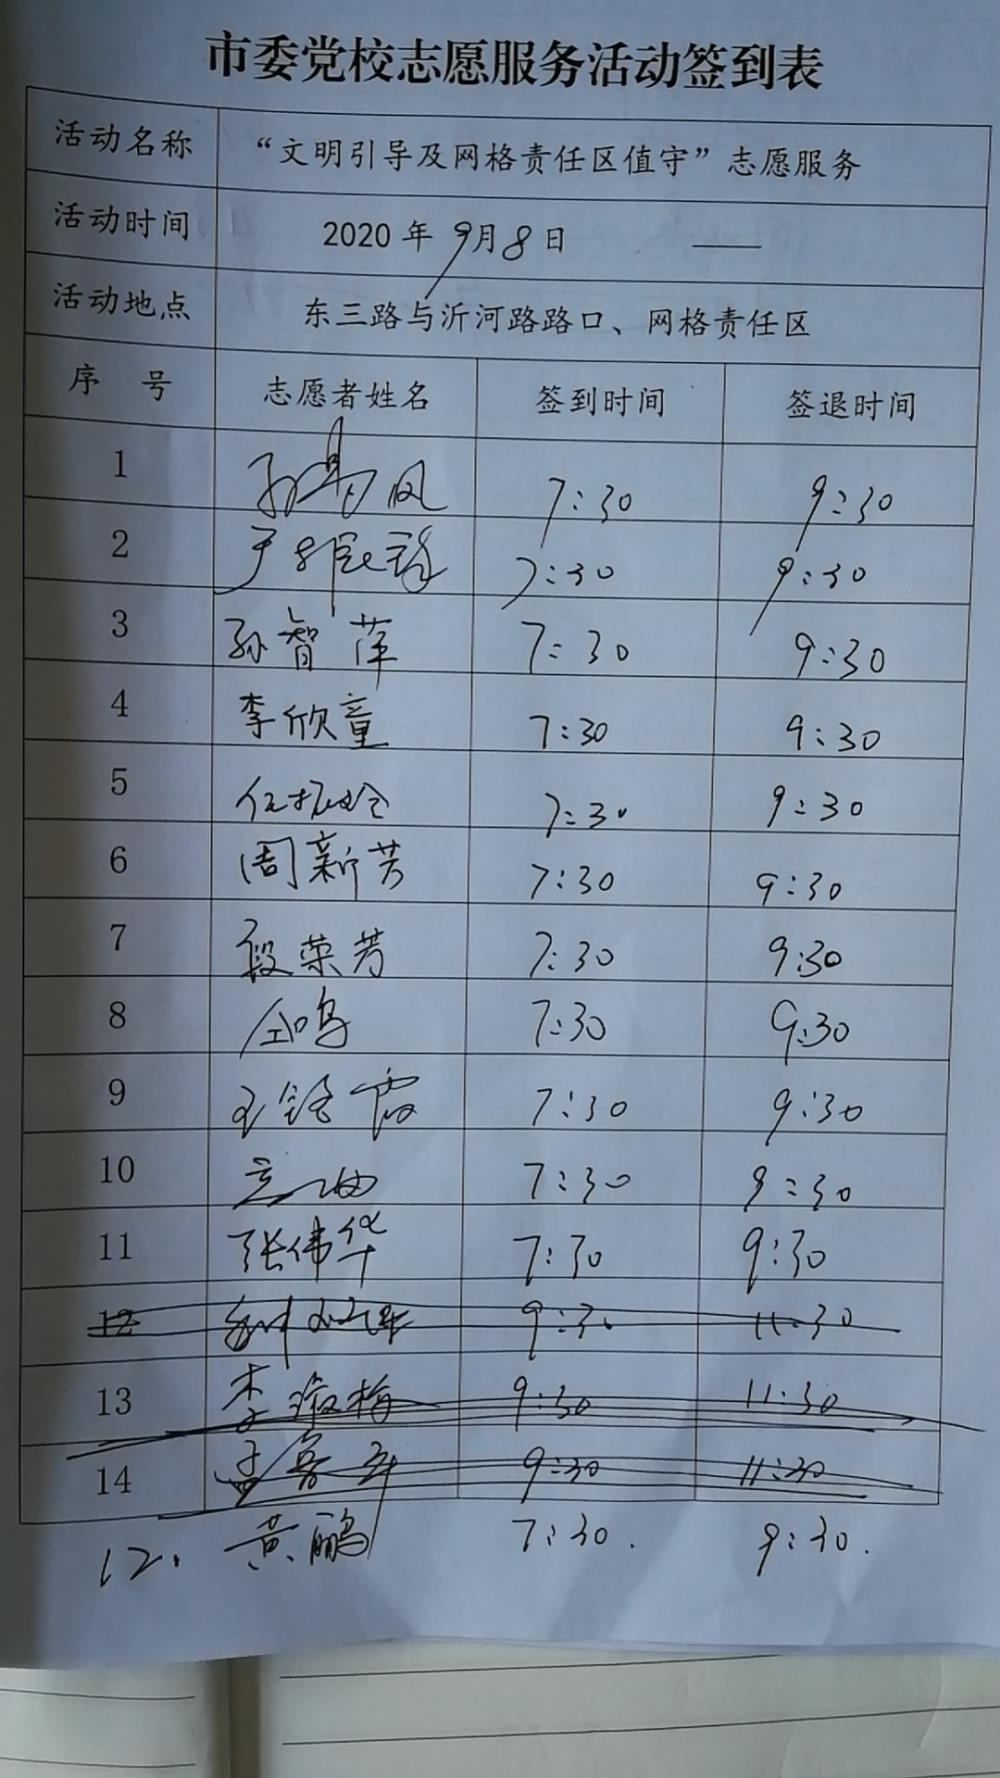 市委党校志愿服务活动签到表
活动名称 “文明引导及网格责任区值守”志愿服务
活动时间 2020 年 9月 8 日 ——
活动地点 东三路与沂河路路口、网格责任区
序 号 志愿者姓名 签到时间 签退时间
1 7:30 9:30
2 7:30 9:30
3 孙智萍 7:30 9:30
4 李欣童 7:30 9:30
5 7:30 9:30
6 周新芳 7:30 9:30
7 段荣芳 7:30 9:30
8 7:30 9:30
9 7:30 9:30
10 7:30 9:30
11 张伟华 7:30 9:30
12 9:30 11:30
13 9:30 11:30
14 9:30 11:30
12. 黄鹏 7:30. 9:30.